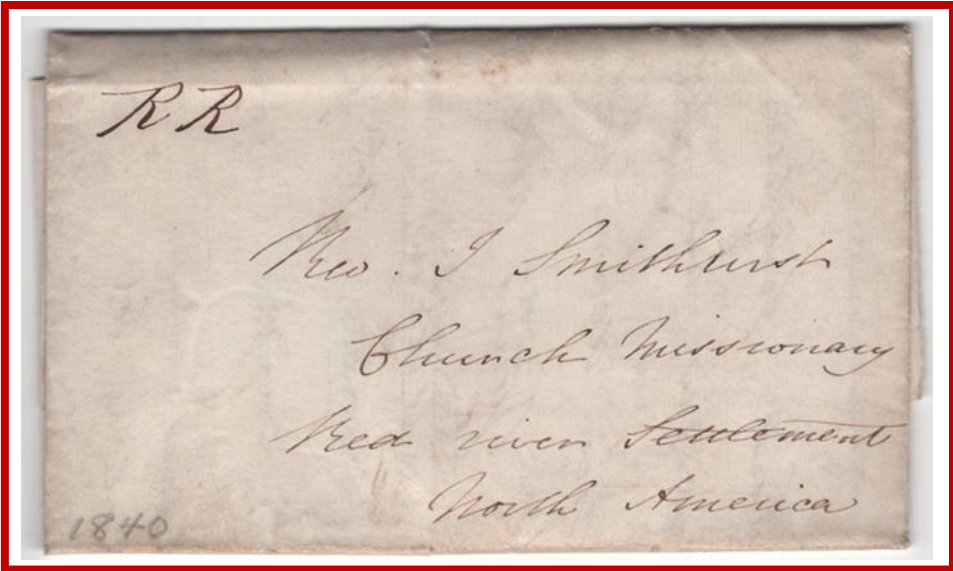 R R
Rev. J Smithurst
Church Missionary
Red river Settlement
North America
1840